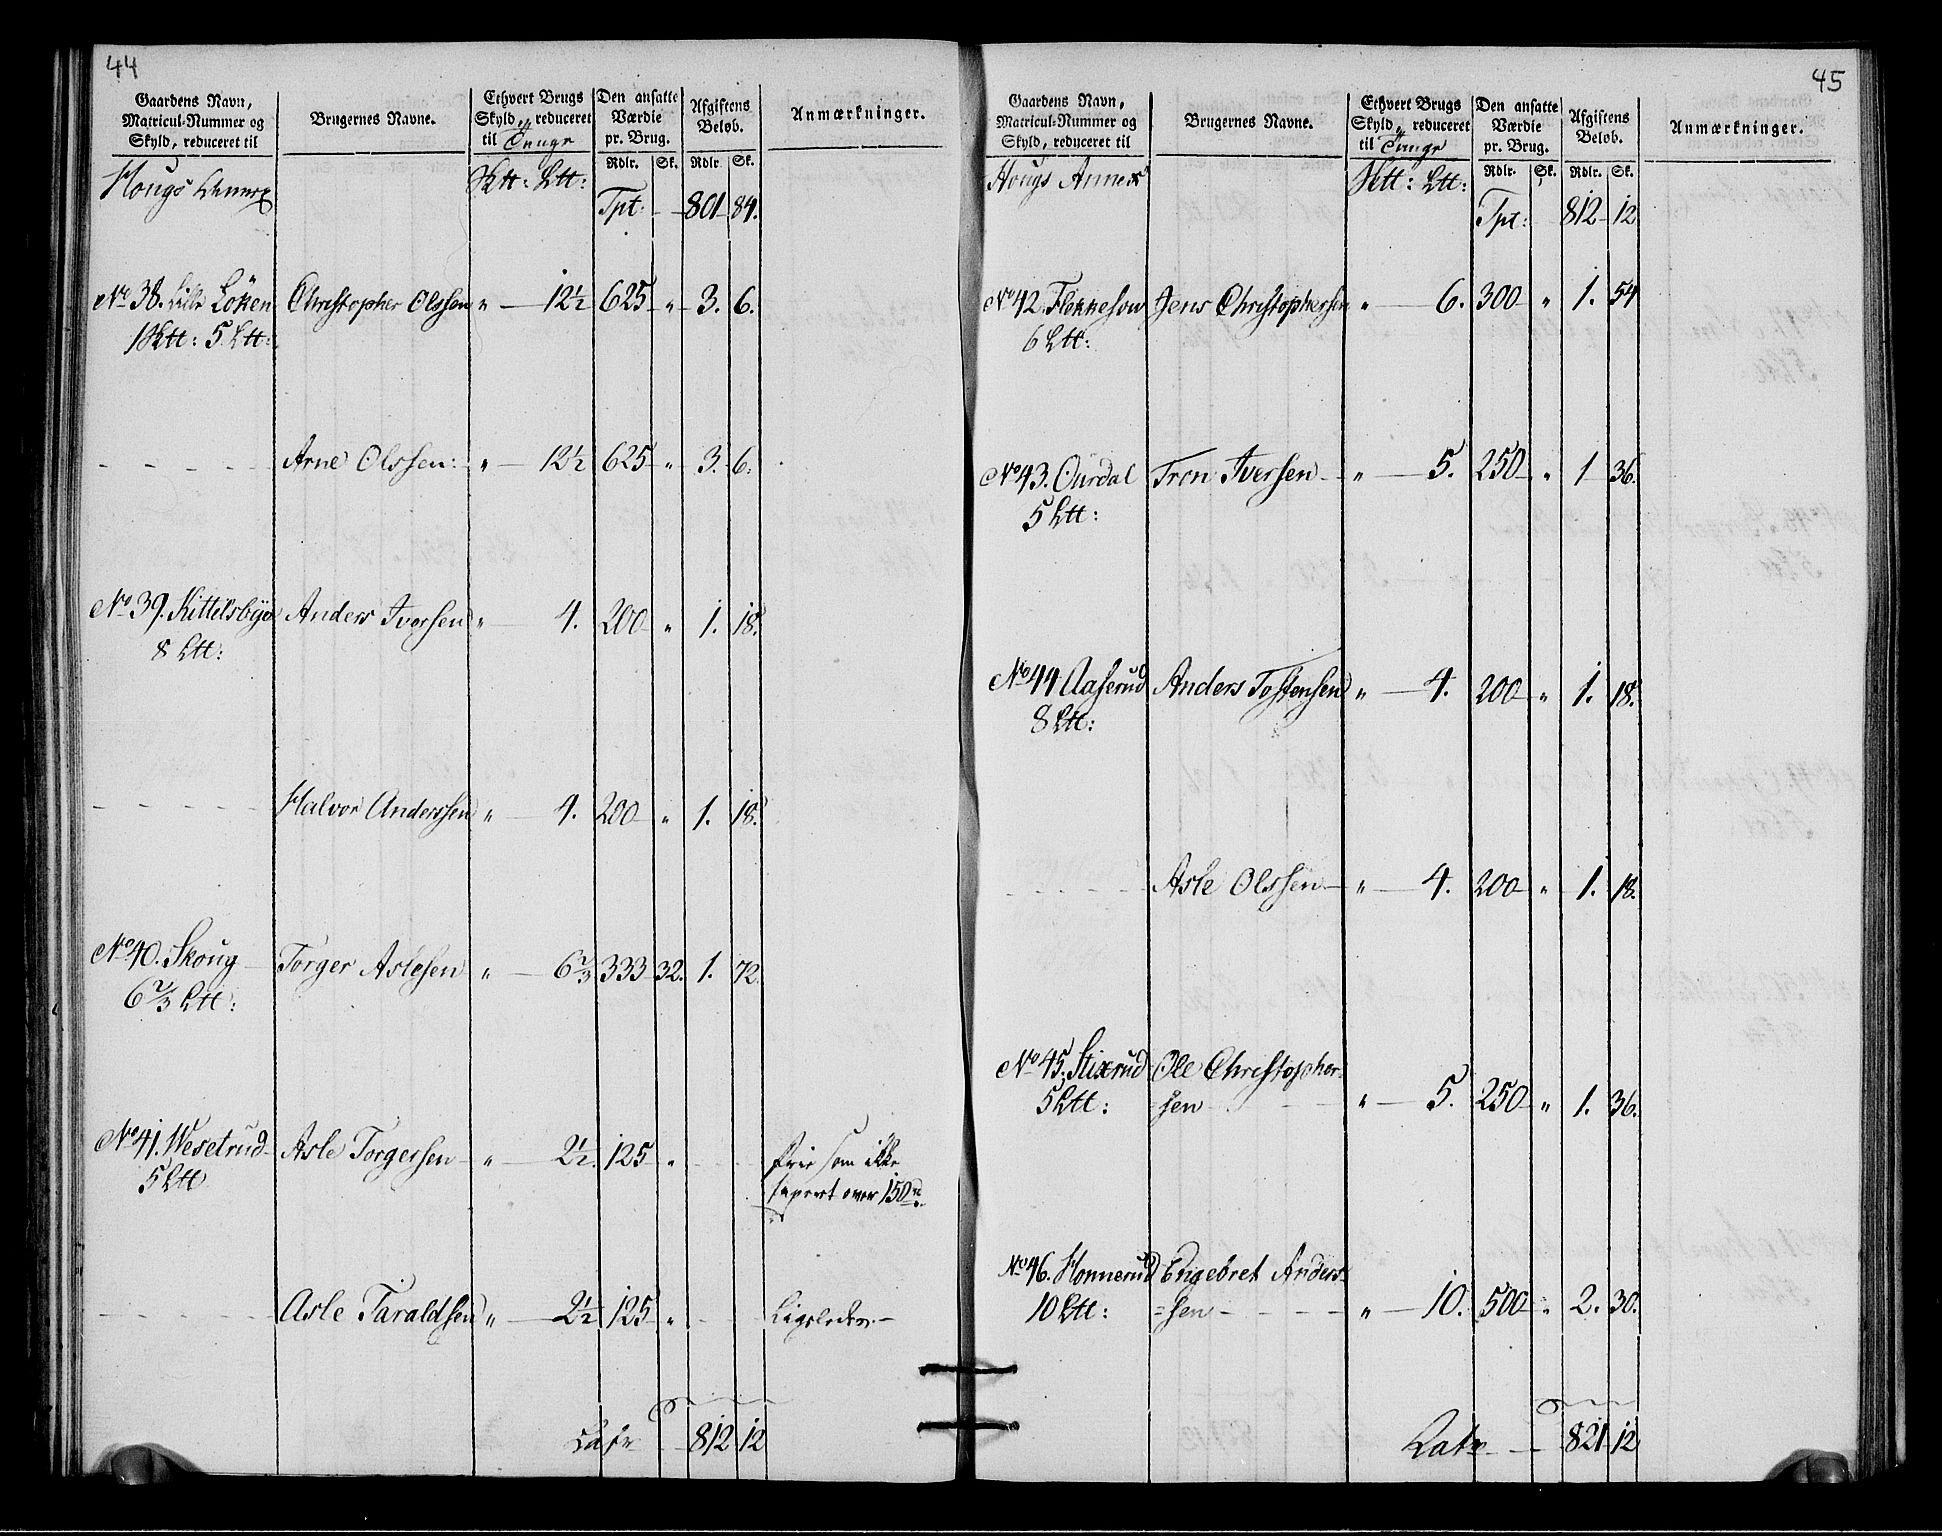 44
Gaardens Navn, Matricul-Nummer og Skyld, reduceret til | Brugernes Navne. | Ethvert Brugs Skyld, reduceret til Tunge | Den ansatte Værdie pr. Brug. | Afgiftens Beløb. | Anmærkninger.
Rdlr. | Sk. | Rdlr. | Sk.
Hougs Annex | Sktt: Ltt:
Tpt: 801 84.
No 38. Lille Löken Christopher Olssen „ 12½ 625 „ 3. 6.
1 Sktt: 5 Ltt:
Arne Olssen: „ 12½ 625 „ 3. 6.
No 39. Kittelsbye Anders Iversen „ 4. 200 „ 1. 18.
8 Ltt:
Halvor Anderssen „ 4. 200 „ 1. 18.
No 40. Skoug Torger Aslesen „ 6⅔ 333 32. 1. 72.
6⅔ Ltt:
No 41. Wesetrud Asle Torgersen „ 2½. 125 „ frie som ikke
5 Ltt taxert over 150 rd
Asle Taraldsen „ 2½ 125 „ Ligeledes
Latr 812 12
45
Gaardens Navn, Matricul-Nummer og Skyld, reduceret til | Brugernes Navne. | Ethvert Brugs Skyld, reduceret til Tunge | Den ansatte Værdie pr. Brug. | Afgiftens Beløb. | Anmærkninger.
Rdlr. | Sk. | Rdlr. | Sk.
Hougs Annex | Sktt: Ltt:
Tpt: 812 12
No 42. Jens Christophersen „ 6. 300 „ 1. 54
6 Ltt:
No 43. Ourdal Tron Iversen „ 5. 250 „ 1 36.
5 Ltt:
No 44 Aaserud Anders Tostensen „ 4. 200 „ 1. 18.
8 Ltt:
Asle Olssen „ 4. 200 „ 1. 18.
No 45. Stixrud Ole Christopher-
5 Ltt: =sen „ 5. 250 „ 1. 36.
No 46. Honnerud Engebret Anders-
10 Ltt: =sen „ 10. 500 „ 2. 30.
Latr 821 12